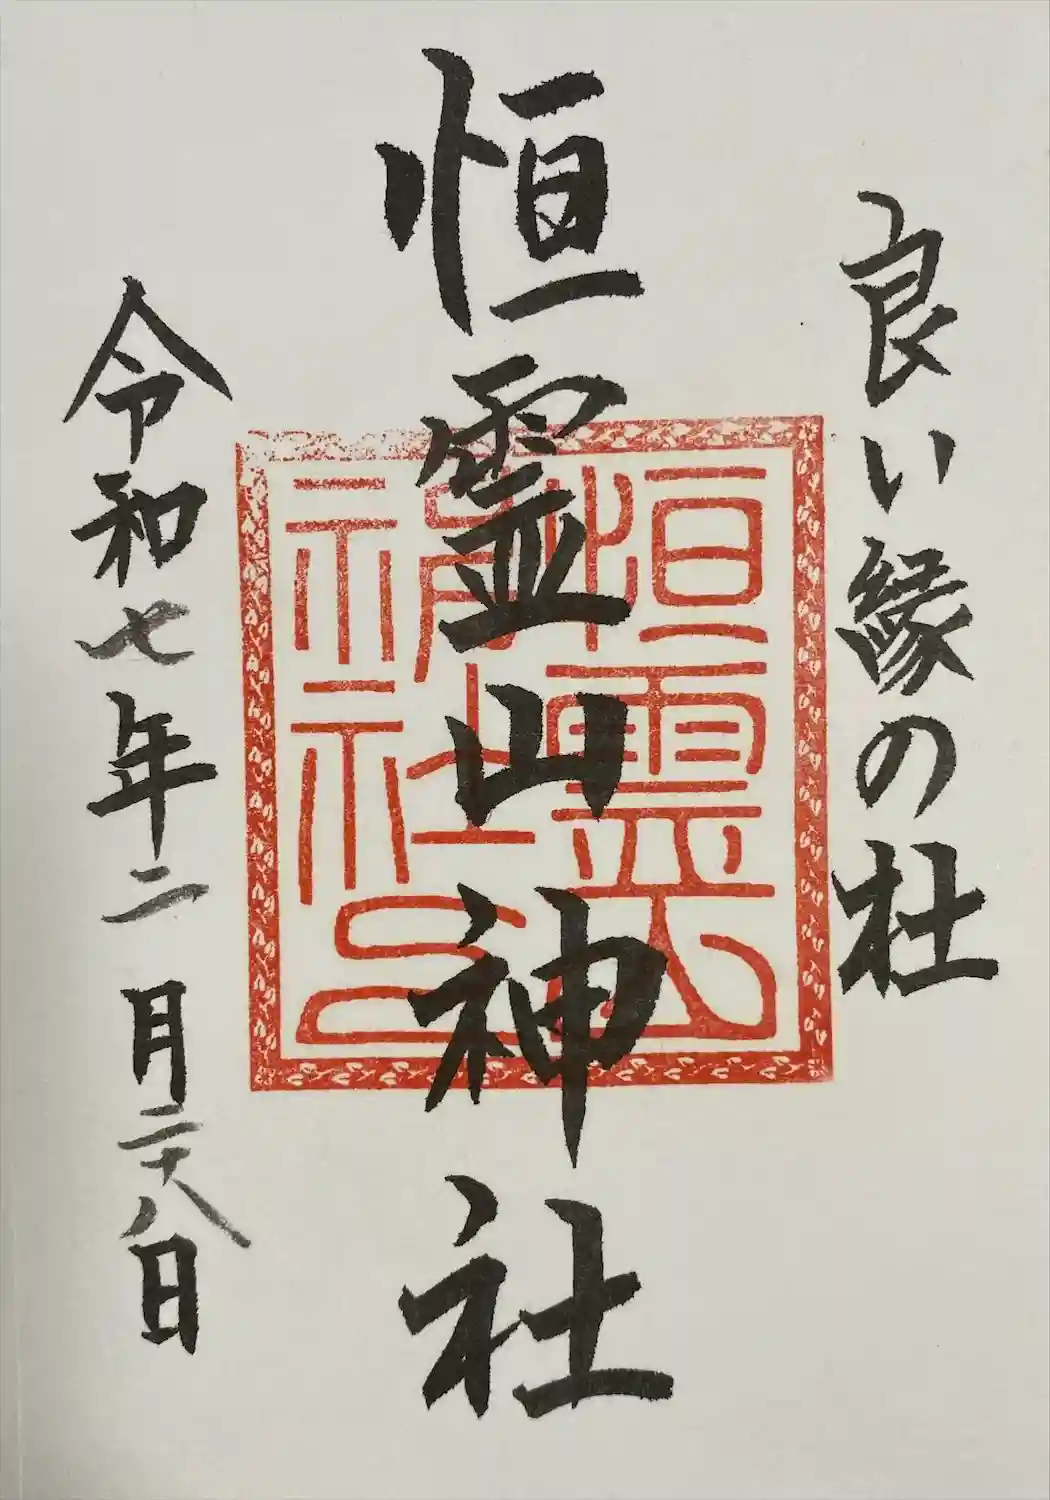 良い縁の杜
恒霊山神社
恒霊山
神社之印
令和七年二月二十八日